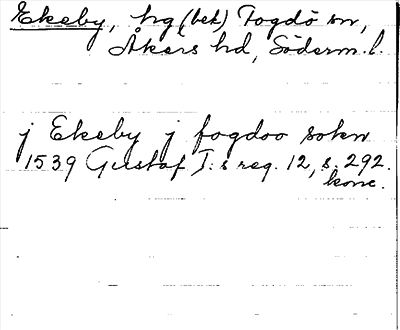 Ekeby, hg (bet) Fogdö sn,
Åkers hd, Söderm. l.
j Ekeby j fogdoo sokn
1539 Gustaf I:s reg. 12, s. 292.
konc.